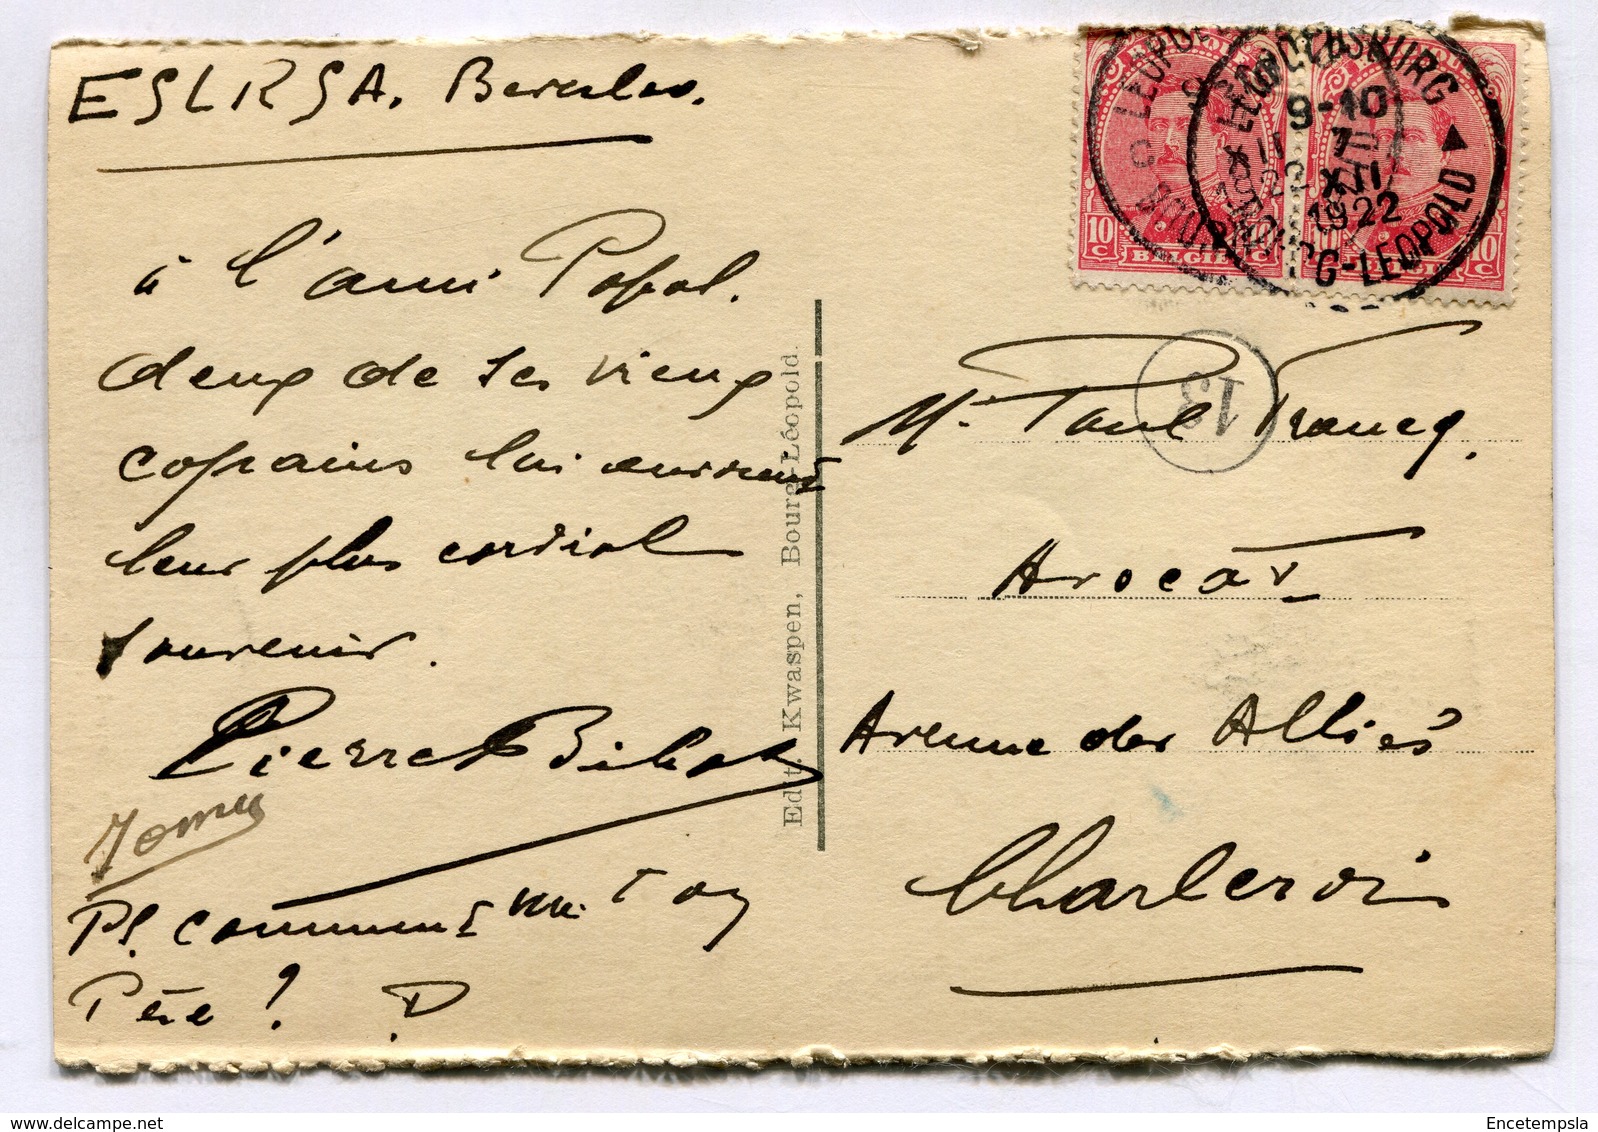 ESLRSA. Beverloo.
à l'ami Popol.
deux de ses vieux
copains lui envoient
leur plus cordial
souvenir.
Pierre Bibot
PS. comment va ton
Père ? P.
Edit. Kwaspen, Bourg-Léopold.
LEOPOLDSBURG
9-10
7
XII
1922
BOURG-LEOPOLD
10 C BELGIE 10 C
13
Mr Paul Francq.
Avocat
Avenue des Alliés
Charleroi
Encetempsla